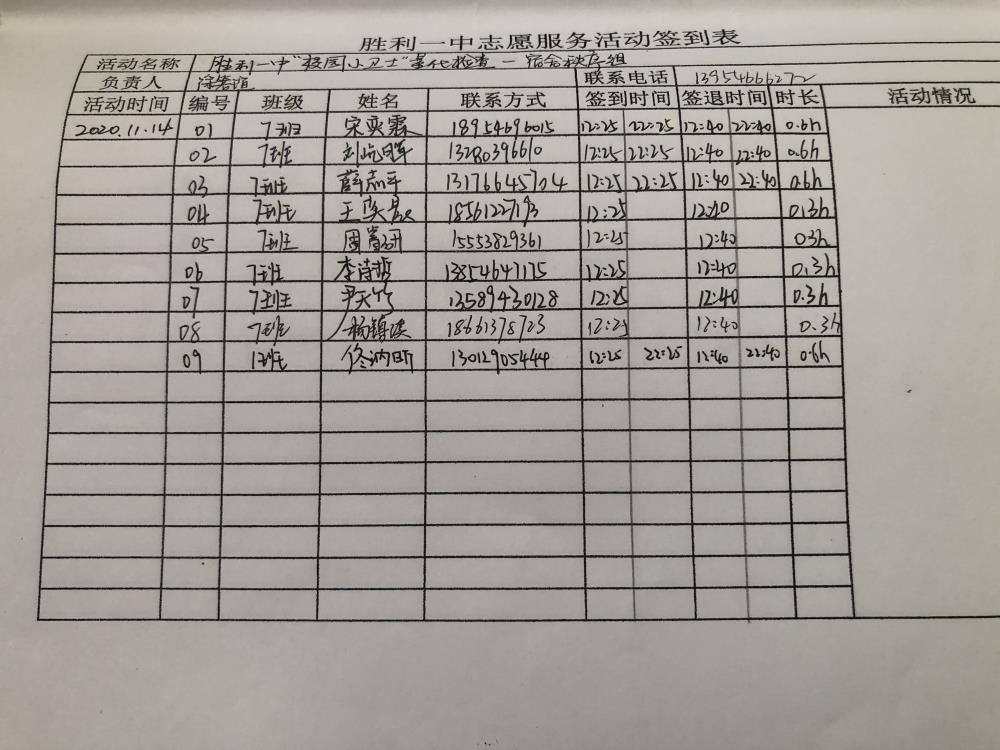 胜利一中志愿服务活动签到表
活动名称 胜利一中"校园小卫士"量化检查－宿舍秩序组
负责人 联系电话 13954666272
活动时间 编号 班级 姓名 联系方式 签到时间 签退时间 时长 活动情况
2020.11.14 01 7班 宋奕霖 18954696015 12:25 22:25 12:40 22:40 0.6h
02 7班 刘屹晖 13280396610 12:25 22:25 12:40 22:40 0.6h
03 7班 薛志平 13176645704 12:25 22:25 12:40 22:40 0.6h
04 7班 王奕 12:25 12:40 0.3h
05 7班 周 15553829361 12:25 12:40 0.3h
06 7班 李诗哲 13854647175 12:25 12:40 0.3h
07 7班 尹天竹 13589430128 12:25 12:40 0.3h
08 7班 杨镇 18661378723 12:25 12:40 0.3h
09 1班 佟讷昕 13012905444 12:25 22:25 12:40 22:40 0.6h